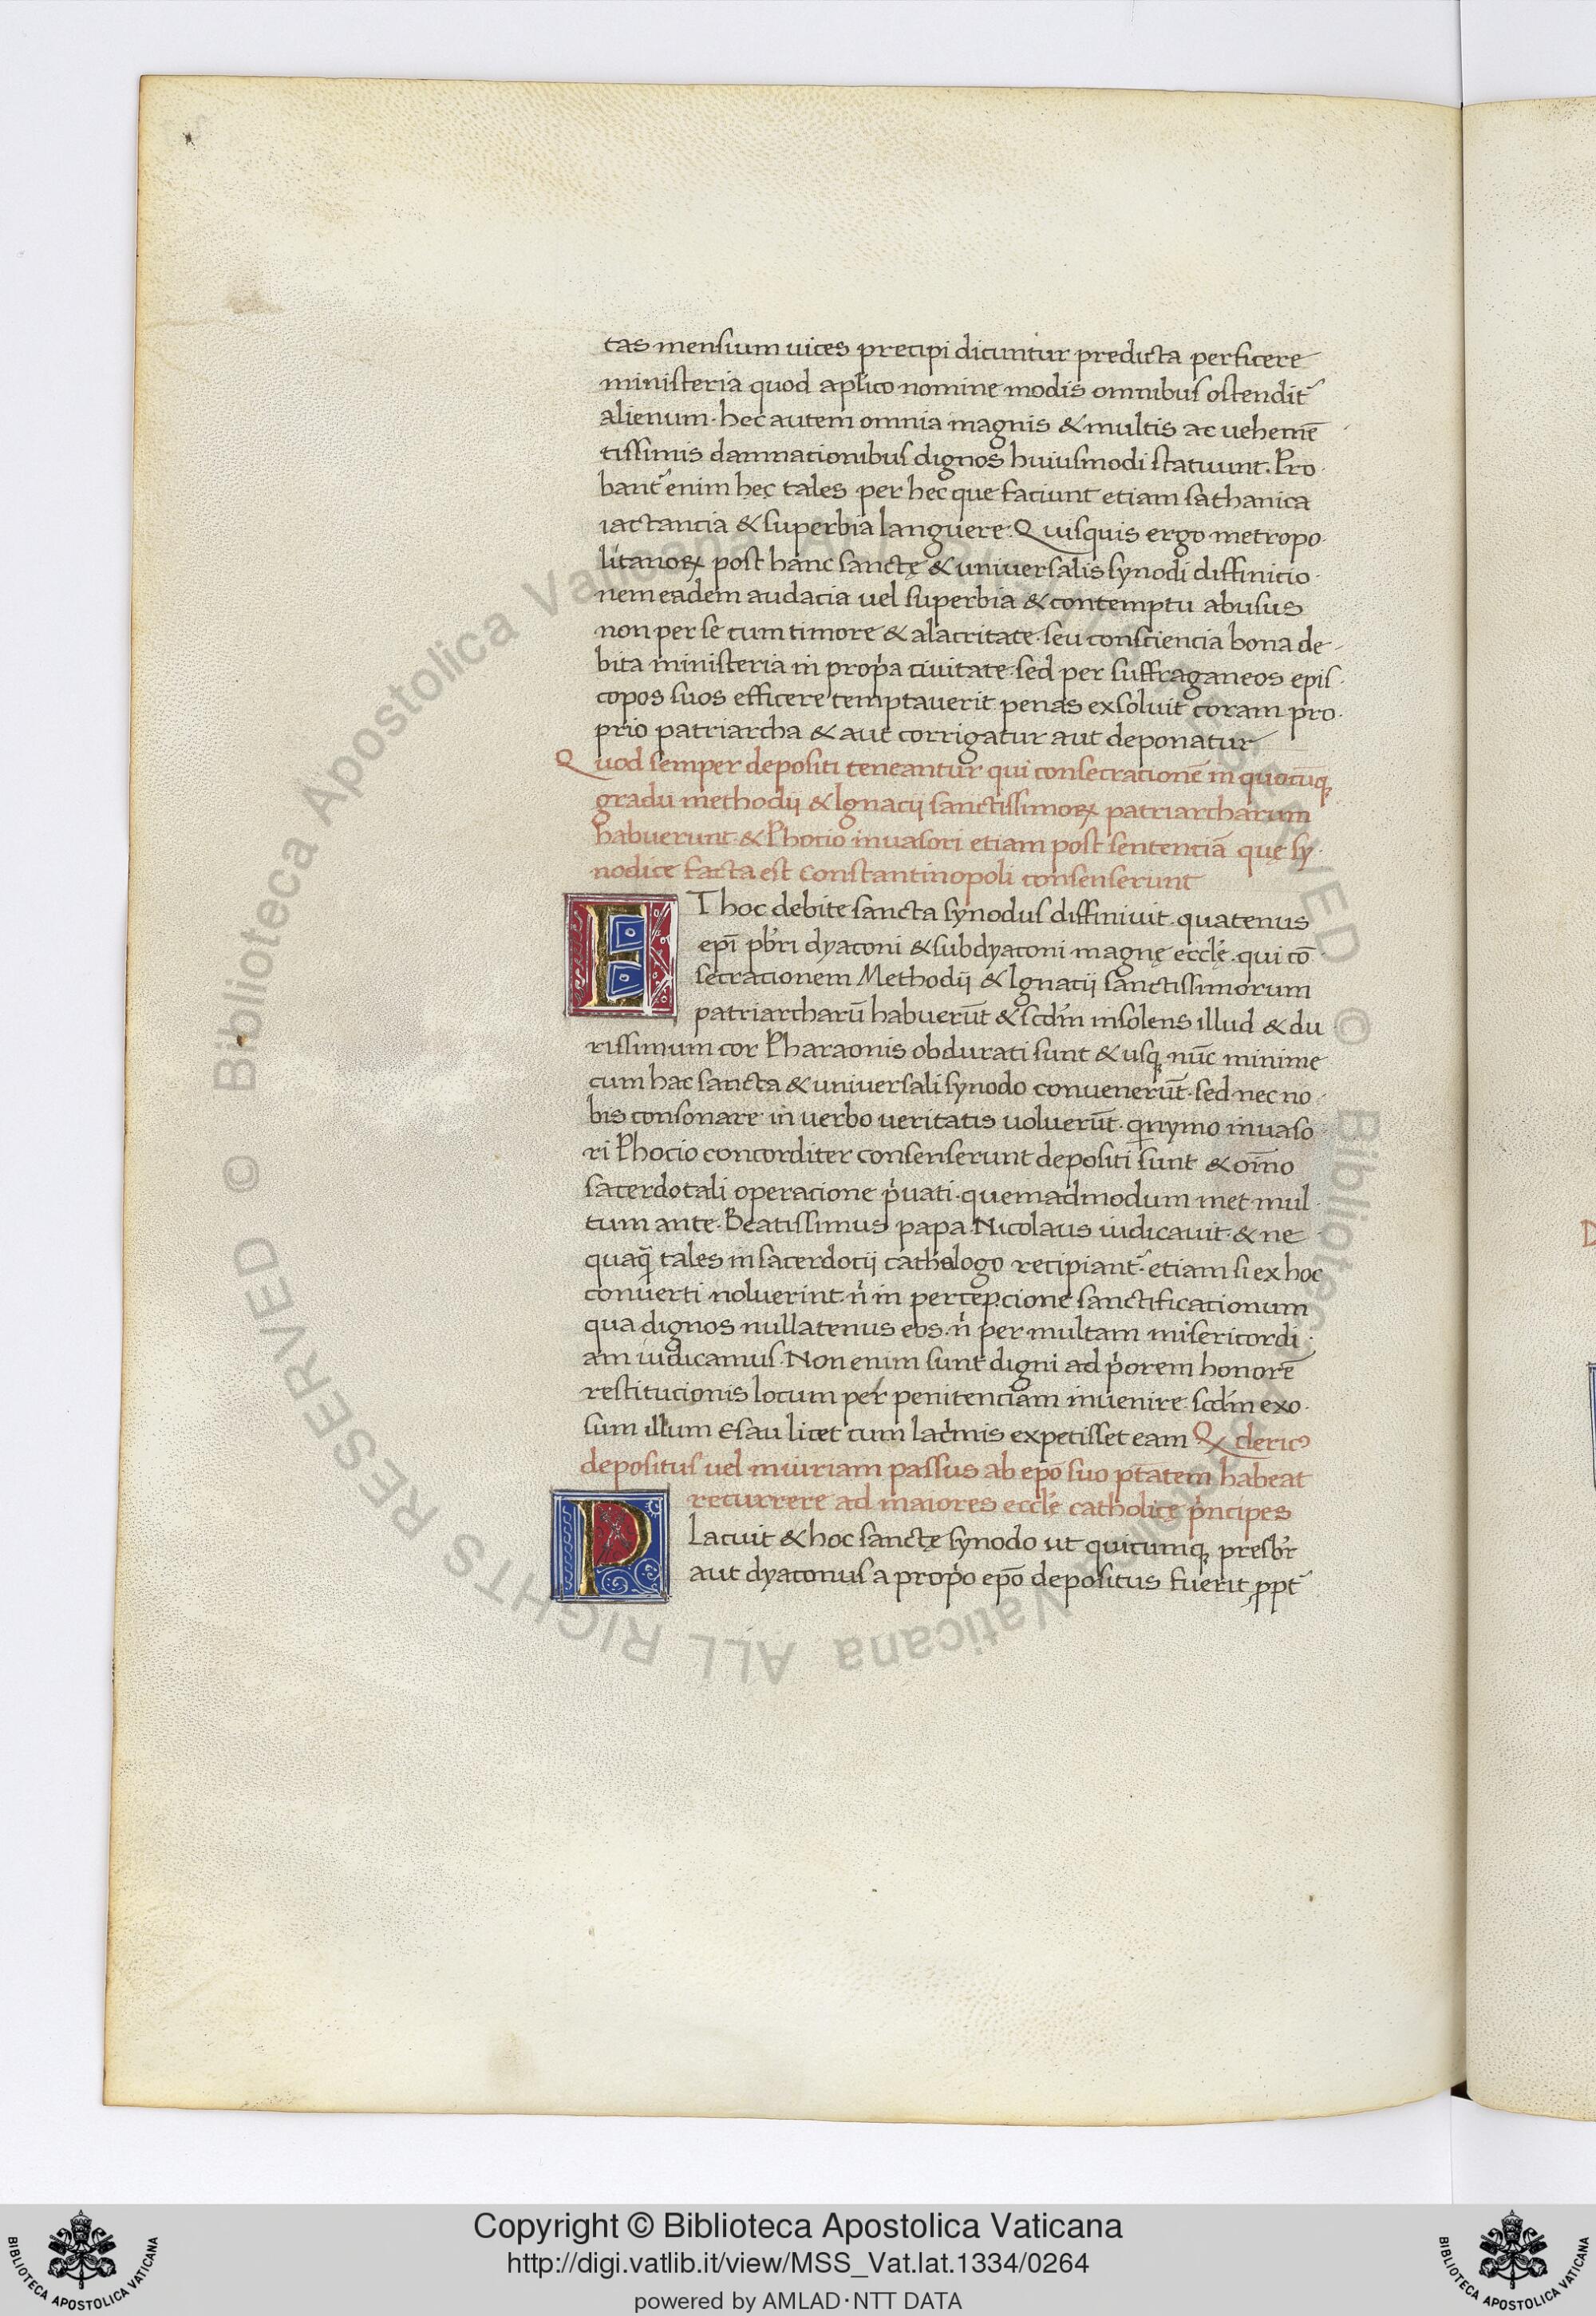 tas mensium uices precipi dicuntur predicta perficere
ministeria quod aplico nomine modis omnibus ostendit᷑
alienum · hec autem omnia magnis & multis ac uehemē
tissimis damnationibus dignos huiusmodi statuunt. Pro·
bant᷑ enim hęc tales per hec que faciunt etiam sathanica
iactancia & superbia languere · Quisquis ergo metropo·
litanoꝝ post hanc sanctę & uniuersalis synodi diffinicio·
nem eadem audacia uel superbia & contemptu abusus
non per se cum timore & alacritate · seu consciencia bona de-
bita ministeria in prop̓a ciuitate · sed per suffraganeos epis·
copos suos efficere temptauerit penas exsoluit coram pro·
prio patriarcha & aut corrigatur aut deponatur
Quod semper depositi teneantur qui consecrationē in quocūqꝫ
gradu methodij & Ignacij sanctissimoꝝ patriarcharum
habuerunt · & Photio inuasori etiam post sentenciā quę sy·
nodice facta est Constantinopoli consenserunt
ET hoc debite sancta synodus diffiniuit · quatenus
ep̄i pb̄ri dyaconi & subdyaconi magnę eccl̄ę · qui cō·
secracionem Methodij & Ignacij sanctissimorum
patriarcharū habuerūt & scd̄m insolens illud & du
rissimum cor Pharaonis obdurati sunt & usqꝫ nūc minime
cum hac sancta & uniuersali synodo conuenerūt · sed nec no·
bis consonare in uerbo ueritatis uoluerūt · q̄nymo inuaso·
ri Photio concorditer consenserunt depositi sunt & oīno
sacerdotali operacione p̓uati · quemadmodum met mul·
tum ante · Beatissimus papa Nicolaus iudicauit · & ne·
quaq̄ tales in sacerdocij cathalogo recipiant᷑ · etiam si ex hoc
conuerti noluerint · n̓ in percepcione sanctificacionum
qua dignos nullatenus eos · n̓ per multam misericordi·
am iudicamus · Non enim sunt digni ad p̓orem honorē
restitucionis locum per penitenciam inuenire · scd̄m exo·
sum illum Esau licet cum lac̓mis expetisset eam Qꝫ clericꝰ
depositus uel iniuriam passus ab ep̄o suo p̄tatem habeat
recurrere ad maiores eccl̄e catholicę p̓ncipes
PLacuit & hoc sanctę synodo ut quicumqꝫ presb̄r
aut dyaconus a prop̓o ep̄o depositus fuerit ꝓpt᷑
Copyright © Biblioteca Apostolica Vaticana
http://digi.vatlib.it/view/MSS_Vat.lat.1334/0264
powered by AMLAD·NTT DATA
BIBLIOTECA APOSTOLICA VATICANA
BIBLIOTECA APOSTOLICA VATICANA
© Biblioteca Apostolica Vaticana ALL RIGHTS RESERVED
© Biblioteca Apostolica Vaticana ALL RIGHTS RESERVED